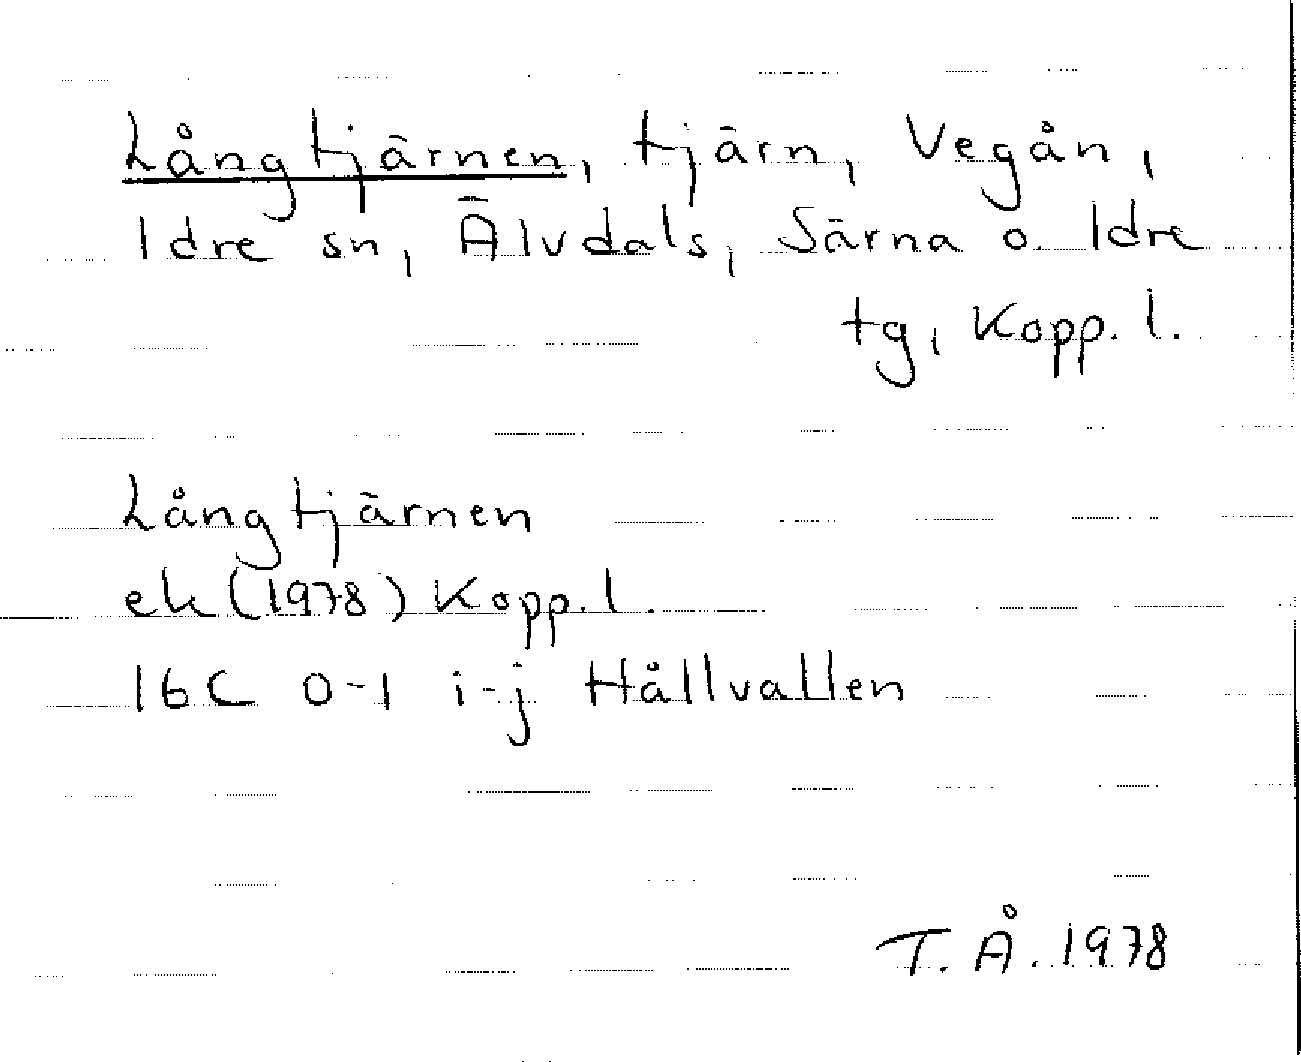 Långtjärnen, tjärn, Vegån,
Idre sn, Älvdals, Särna o. Idre
tg, Kopp. l.
Långtjärnen
ek (1978) Kopp. l.
16C 0-1 i-j Hållvallen
T. Å. 1978